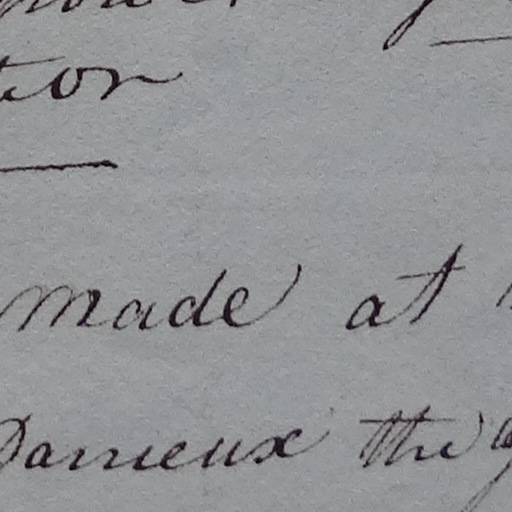 tion
made at
Darrieux the